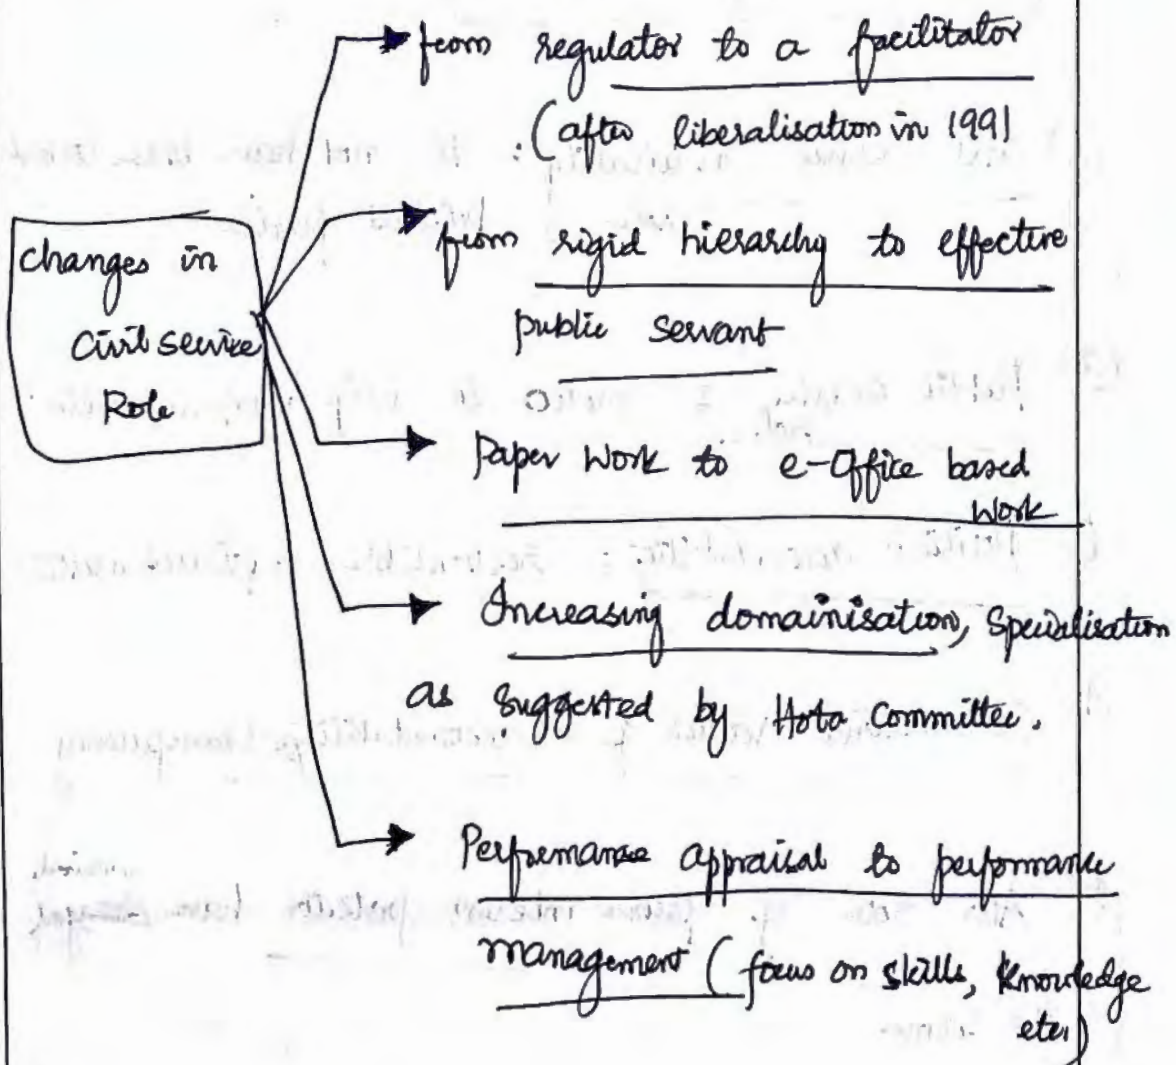 from regulator to a facilitator
(after liberalisation in 1991
changes in
Civil Service
Role
from rigid hierarchy to effective
public servant
Paper Work to e-Office based
Work
Increasing domainisation, Specialisation
as suggested by Hota Committee.
Performance appraisal to performance
management (focus on skills, knowledge
etc)